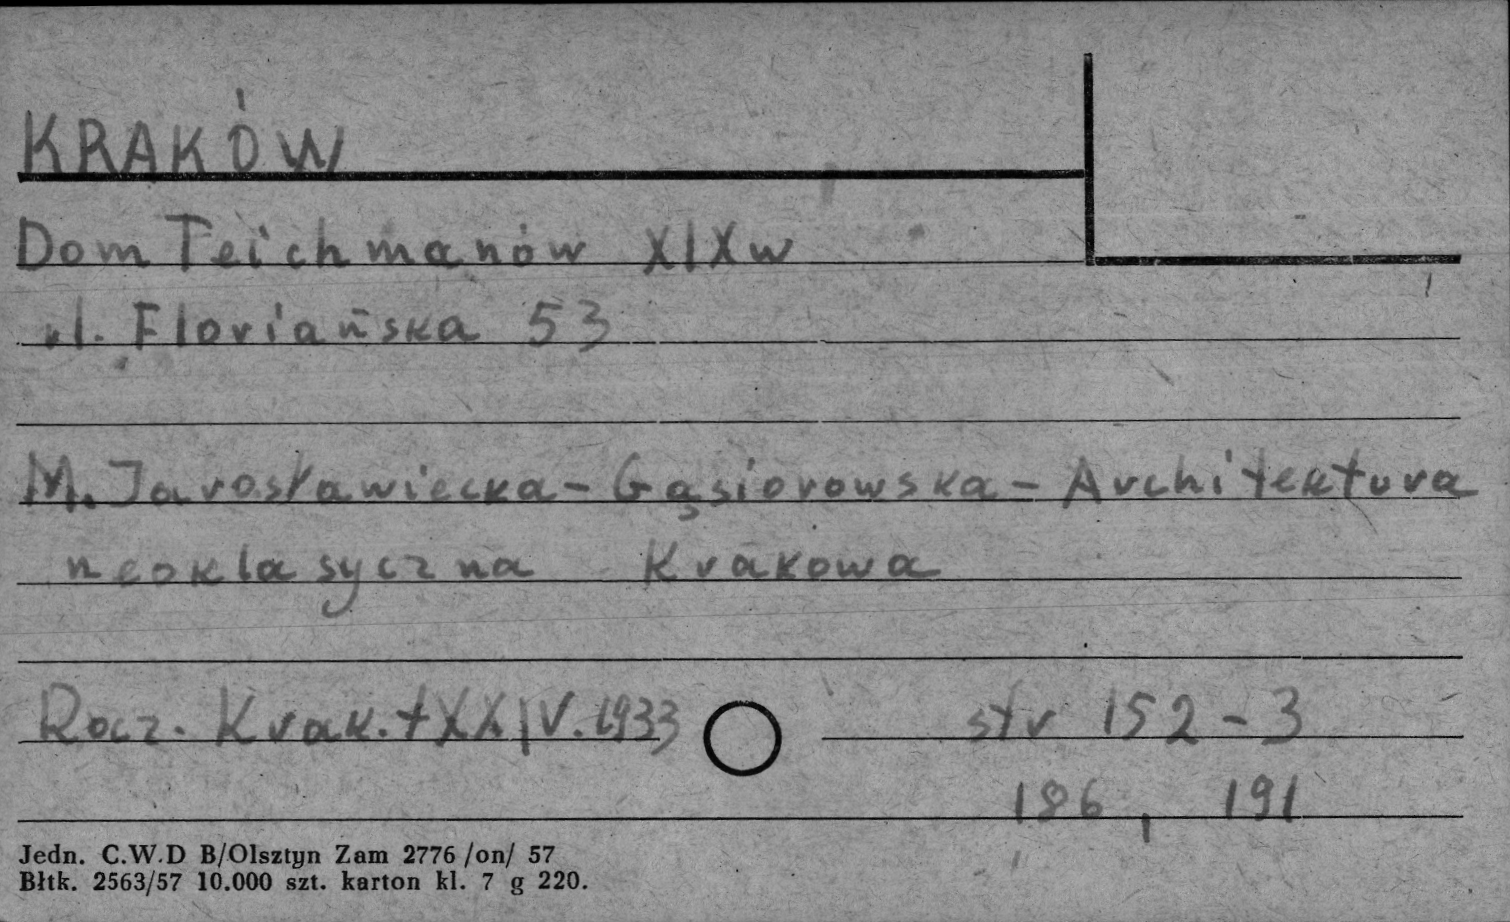 KRAKÓW
Dom Teichmanów XIX w
ul. Floriańska 53
M. Jarosławiecka - Gąsiorowska - Architektura
neoklasyczna Krakowa
Rocz. Krak. t XXIV. 1933 str 152 - 3
186, 191
Jedn. C.W.D B/Olsztyn Zam 2776 /on/ 57
Błtk. 2563/57 10.000 szt. karton kl. 7 g 220.